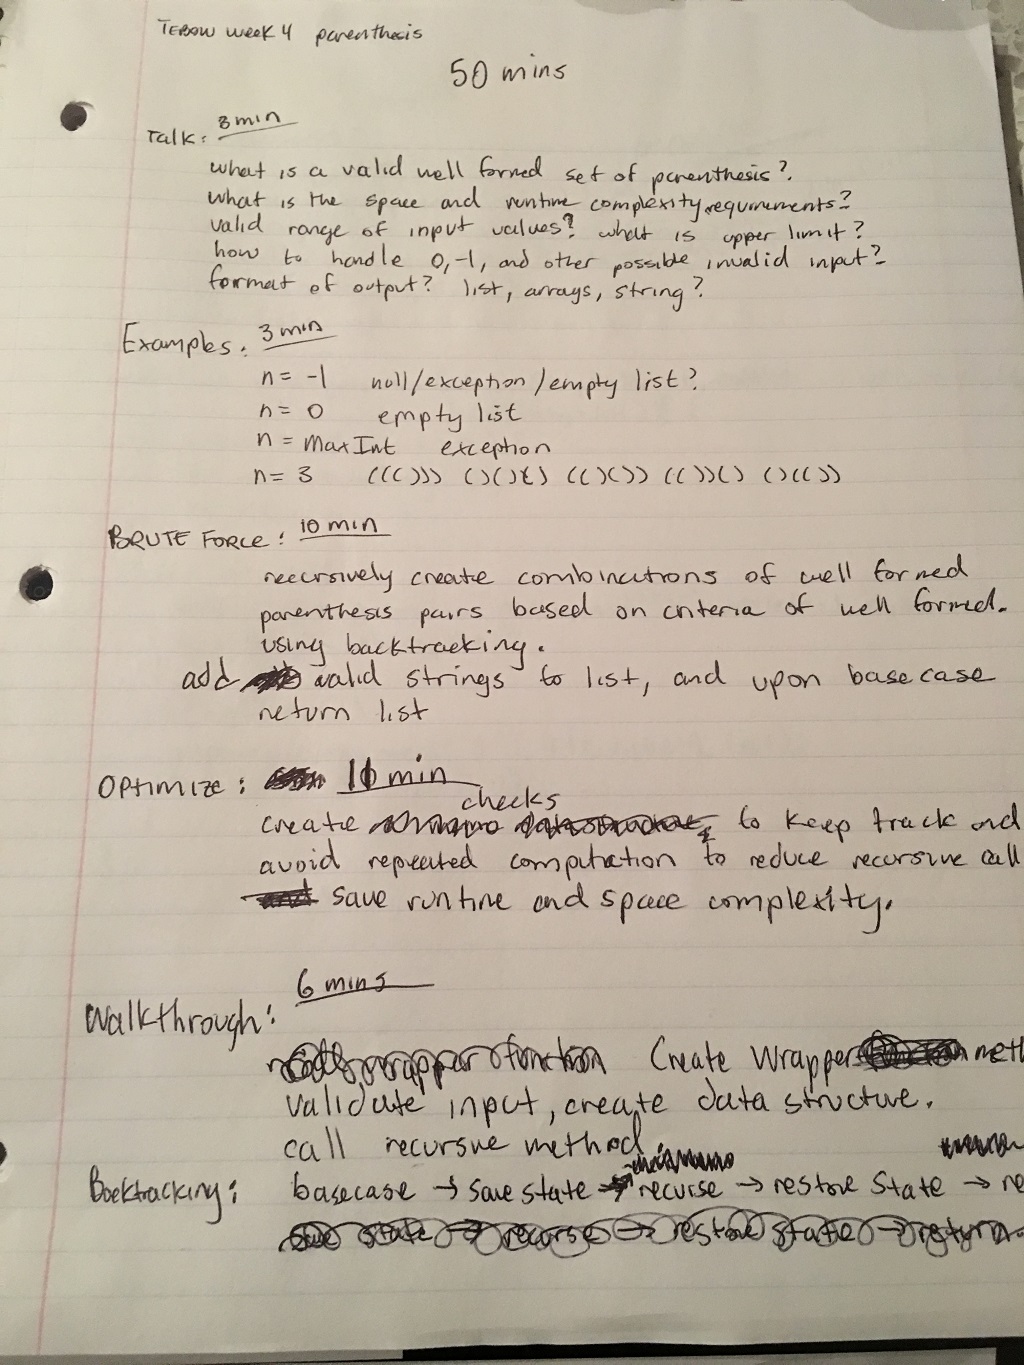 TEBOW week 4 parenthesis
50 mins
Talk: 3 min
what is a valid well formed set of parenthesis?
what is the space and runtime complexity requirements?
valid range of input values? what is upper limit?
how to handle 0,-1, and other possible invalid input?
format of output? list, arrays, string?
Examples: 3 min
n= -1 null/exception/empty list?
n= 0 empty list
n = MaxInt exception
n= 3 ((())) ()()() (()()) (())() ()(())
BRUTE FORCE: 10 min
recursively create combinations of well formed
parenthesis pairs based on criteria of well formed.
using backtracking.
add valid strings to list, and upon basecase
return list
OPTIMIZE: 10 min
checks
create to keep track and
avoid repeated computation to reduce recursive call
save runtime and space complexity.
6 mins
Walkthrough:
Calls wrapper function Create Wrapper meth
validate input, create data structure.
call recursive method
Backtracking: basecase → save state → recurse → restore state → re
save state → recurse → restore state → return